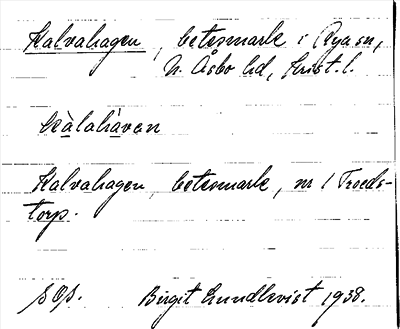 Kalvahagen, betesmark i Rya sn,
N. Åsbo hd, Krist. l.
kàlahàven
Kalvahagen, betesmark, nr 1 Troeds-
torp.
Birgit Lundkvist 1938.